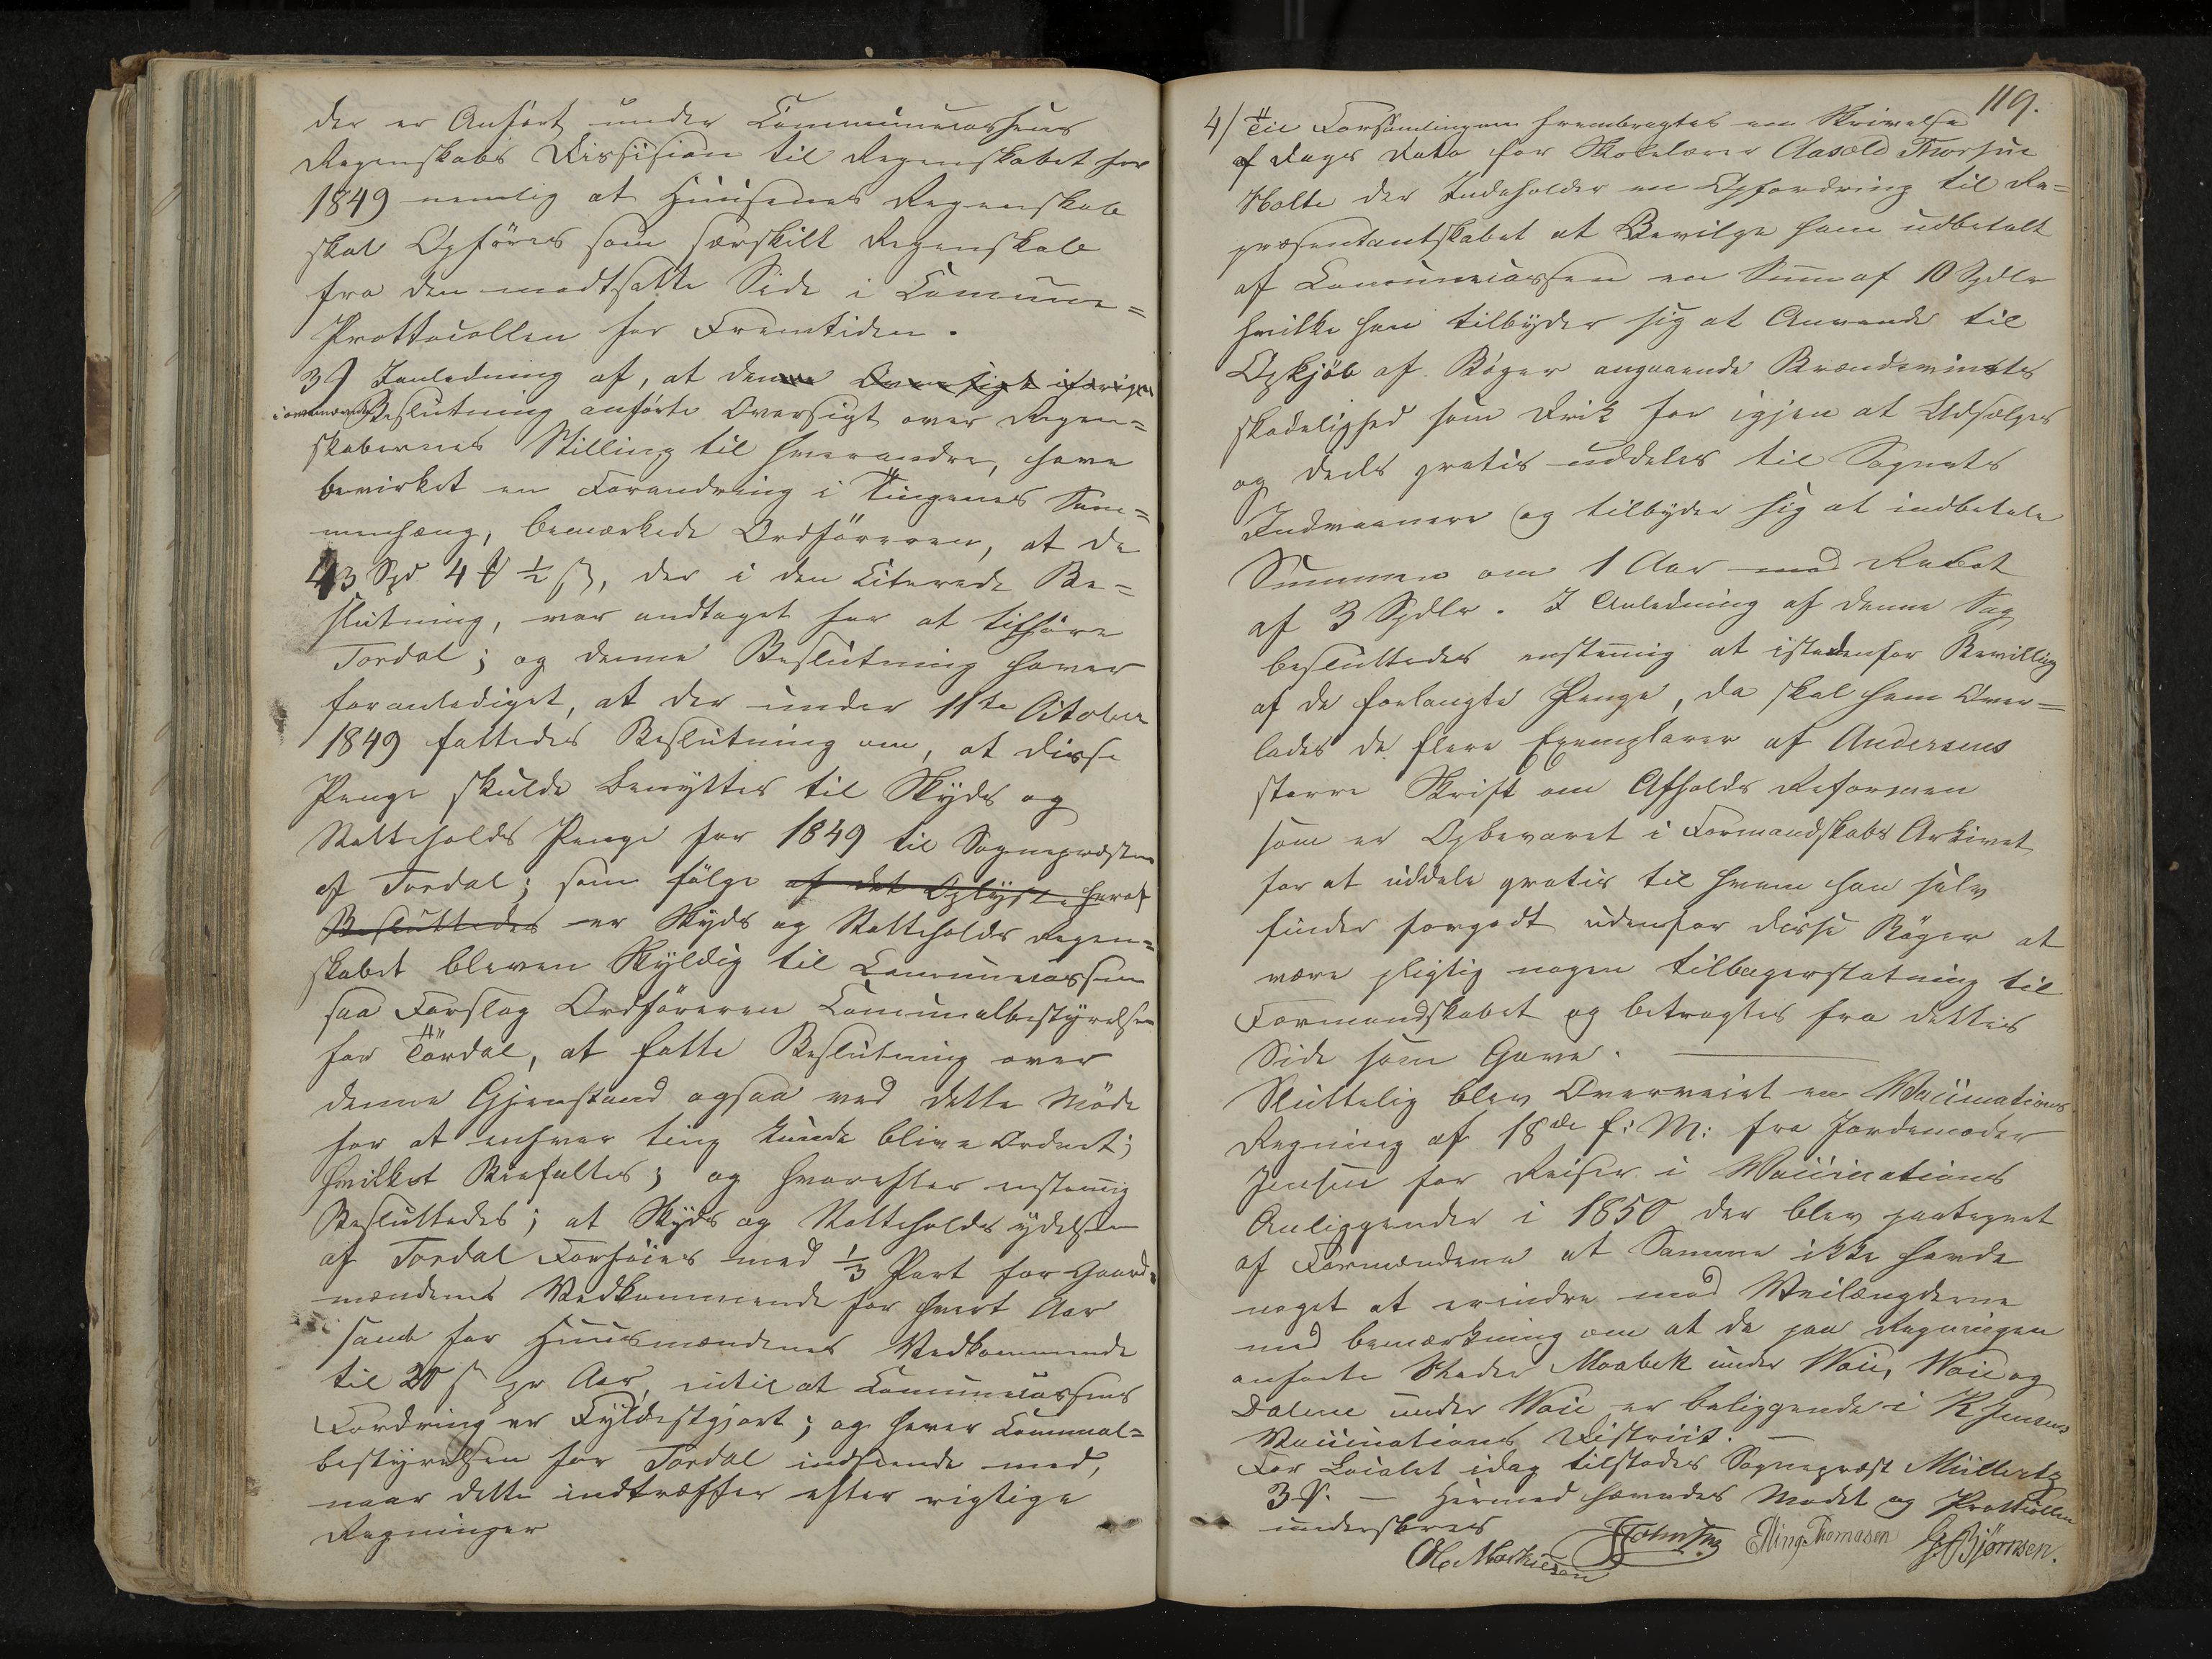 der er Anført under Communecassens
Regenskabs Dissision til Regenskabet for
1849 nemlig at Huusenes Regenskab
skal Opføres som særskilt Regenskab
fra den modtsatte Side i Commune=
Prottocollen for Fremtiden.
3/ I anledning af, at denne Oversigt iførige
i ovennævnte Beslutning anførte Oversigt over Regen=
skabernes Stilling til hverandre, have
bevirket en Forandring i Tingenes Sam=
menhæng, bemærkede Ordføreren, at de
43 Spd 4 ½ ß, der i den Citerede Be=
slutning, var andtaget for at tilhøre
Tordal; og denne Beslutning haver
foranlediget, at der under 11te October
1849 fattedes Beslutning om, at disse
Penge skulde benyttes til Skyds og
Natteholds Penge for 1849 til Sognepræsten
af Tordal; som følge af det Oplyste heraf
Besluttedes er Skyds og Natteholds Regen=
skabet bleven Skyldig til Communecassen
saa Forslog Ordføreren Communalbestyrelsen
for Tördal, at fatte Beslutning over
denne Gjenstand ogsaa ved dette Møde
for at enhver ting kunde blive Ordnet;
hvilket Bifaltes; og hvorefter enstemig
Besluttedes; at Skyds og Natteholds ydelsen
af Tordal Forhøies med 1/3 Part for Gaard=
mændenes Vedkommende for hvert Aar
samt for Huusmændenes Vedkommende
til 20 ß pr Aar, indtil at Communecassens
Fordring er Fyldestgjort; og haver Commual=
bestyrelsen for Tordal indseende med,
naar dette indtræffer efter rigtige
Regninger
119.
4/ Til Forsamlingen frembragtes en Skrivelse
af Dags Dato fra Skolelærer Aasold Thorsen
Holte der Indeholder en Opfordring til Re=
præsentantskabet at Bevilge ham udbetalt
af Communecassen en Sum af 10 Spdlr
hvilke han tilbyder sig at Anvende til
Opkjöb af Bøger angaaende Brændevinets
skadelighed som Drik for igjen at Udsælges
og deels gratis uddeles til Sognets
Indvaanere og tilbyder sig at indbetale
Summen om 1 Aar med Rabat
af 3 Spdlr. I Anledning af denne Sag
besluttedes enstemig at istedenfor Bevilling
af de forlangte Penge, da skal ham Over=
lades de flere Exemplarer af Andersens
større Skrift om Afholds Reformen
som er Opbevaret i Formandskabs Arkivet
for at uddele gratis til hvem han selv
finder forgodt udenfor disse Bøger at
være pligtig nogen tilbagerstatning til
Formandskabet og betragtes fra dettes
Side som Gave.
Sluttelig blev Overveiet en Vaccinations
Regning af 18de f: M: fra Jordemoder
Jensen for Reiser i Vaccinations
Anliggender i 1850 der blev paategnet
af Formændene at Samme ikke havde
noget at erindre mod Veilængderne
med bemærkning om at de paa Regningen
anførte Steder Moabek under Voie, Voie og
Dalene under Voie er beliggende i K Jensens
Vaccinations District.
For Localet idag tilstodes Sognepræst Müllertz
3 . – Hermed hævedes Mødet og Prottocollen
underskreves
Ole Mathiesen Johnsen Elling Thomasen G. Bjørnsen.